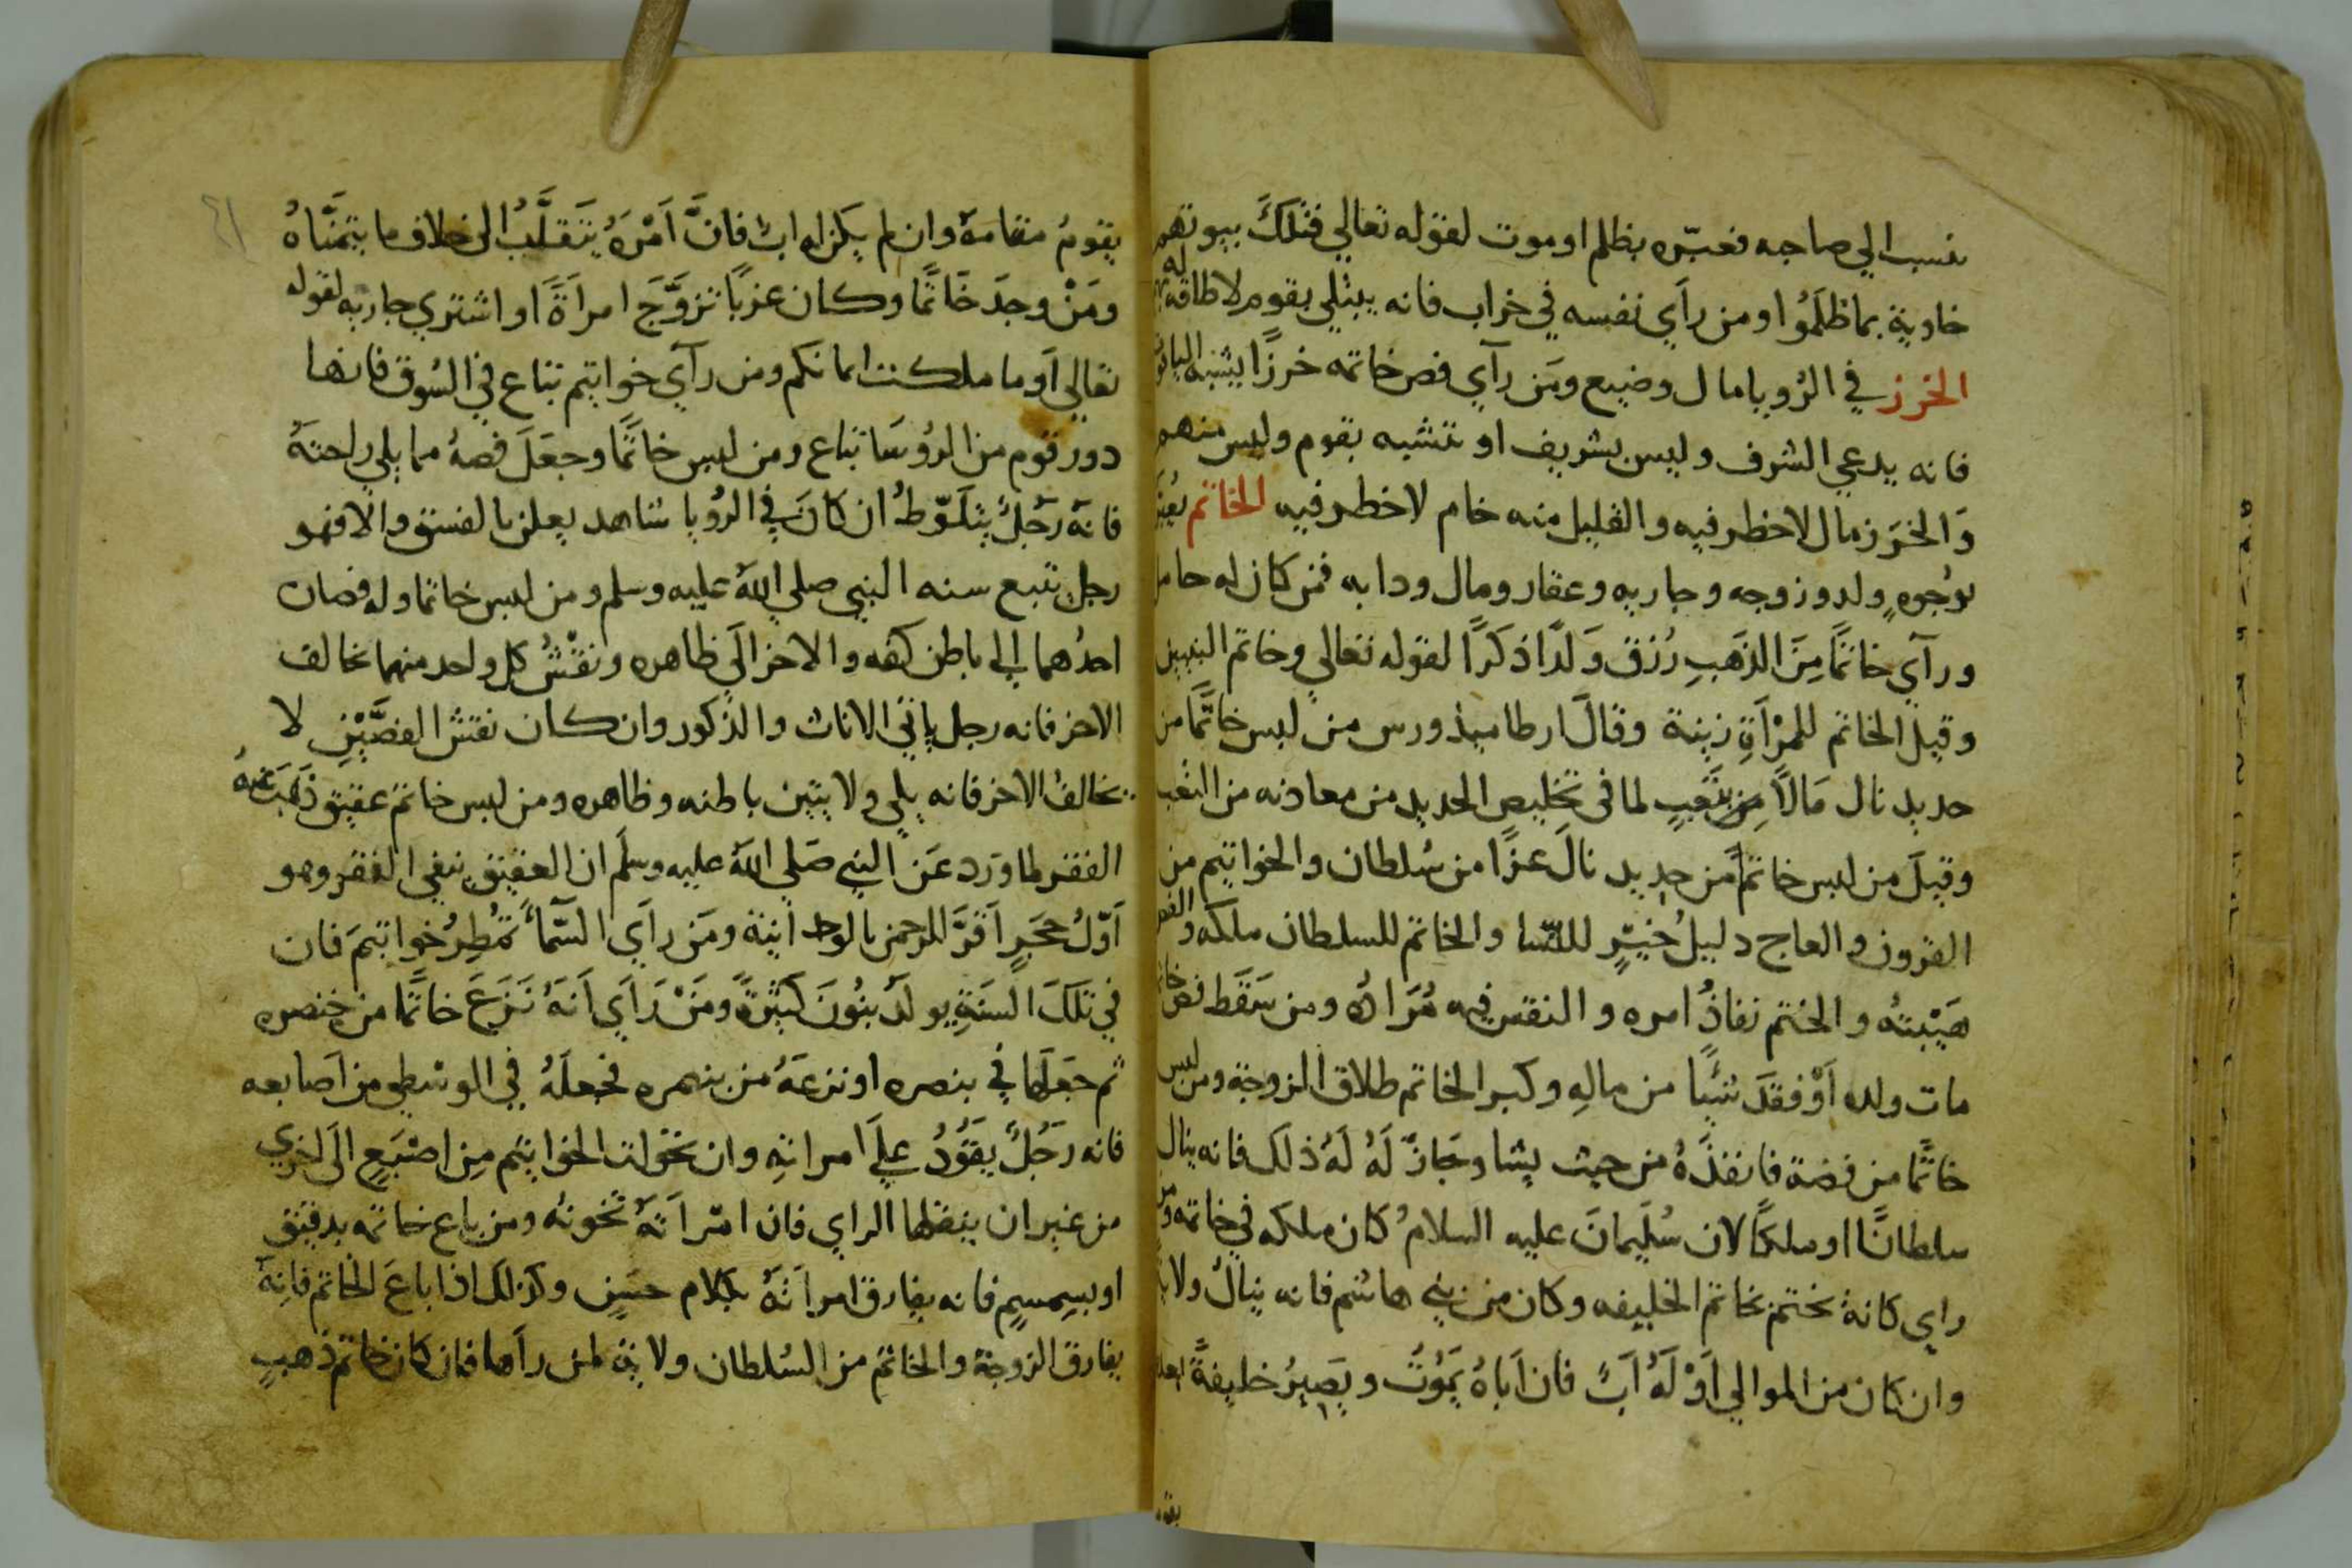 نفسب الي صاحبه فعبّره بظلم او موت لقوله تعالي فتلكَ بيوتهم
خاوية بما ظلَمُوا ومن رآي نفسه في خراب فانه يبتلي بقوم لا طاقة له
الخرز في الرُويا مال وضيع ومَن رآي فص خاتمه خرزًا يشبه الياقو
فانه يدعي الشرف وليس بشريف او تتشبه بقوم وليس منهم
وَالخرَز مال لاخطر فيه والقليل منه خام لاخطر فيه الخاتم يُعبَر
بوُجوهٍ ولد وزوجه وجاريه وعقار ومال ودابه فمن كان له حامل
ورآي خاتمًا مِنَ الذهَبِ رُزق وَلدًا ذكرًا لقوله تعالي وخاتم النبيين
وقيل الخاتم للمرْاَةِ زينة وقالَ ارطاميذورس من لبس خاتمًا من
حديد نال مَالًا مِن تعَبٍ لما فى تخليص الحديد من معادنه من التعب
وقيلَ من لبس خاتمًا من حديد نالَ عزًا من سُلطان والخواتيم من
القرون والعاج دليلُ خيرٍ للنسّا والخاتم للسلطان ملكه والفص
هَيْبتهُ والختم نفاذُ امره والنقس فيه مُرَادُه ومن سَقَط فص خاتمه
مات ولده اَوْ فقدَ شيًا من مالِهِ وكسر الخاتم طلاق الزوجة ومن لبس
خاتمًا من فضة فانفذَهُ من حيث يشا وجَازَ لَهُ لَهُ ذلك فانه ينال
سلطانًا او ملكًا لان سُليمانَ عليه السلامُ كان ملكه في خاتمه ومن
راي كانهُ تختم بخاتم الخليفه وكان من بني هاشم فانه ينالُ ولايه
وان كان من الموالي اَوْ لَهُ اَبٌ فان اَباهُ يَمُوتُ ويَصِيرُ خليفةً
بقو
يقومُ مقامهُ وان لم يكن له اب فانَّ اَمْرَهُ يتَقلَّبُ الى خلاف ما يتمَنَّاهُ
ومَنْ وجدَ خَاتمًا وكان عزبًا تزوَّجَ امراَةً او اشتري جاريه لقوله
تعالي اَو ما ملكت ايمانكم ومن رآي خواتيم تباع في السُوق فانها
دور قوم من الرُوسَا تباع ومن لبس خاتمًا وجعَلَ فصهُ مما يلي راحتهُ
فانهُ رَجُلٌ يتلَوّطُ ان كانَ في الرُويا شاهد يعلن بالفسق والا فهو
رجل تتبع سنه النبي صلي اللهُ عليه وسلم ومن لبس خاتما وله فصان
احدُهما الى باطن كفه والاخر الي ظاهره ونقْشُ كل واحد منهما مخالف
الاخر فانه رجل ياتي الاناث والذكور وان كان نقش الفصَّيْنِ لا
يخالفُ الاخر فانه يلي ولا يتبين باطنه وظاهره ومن لبس خاتم عقيق ذهَبَ عَنهُ
الفقر لما ورَد عَن النبي صَلي اللهُ عليه وسلم ان العقيق ينفي الفقر وهو
اَوّلُ حجَرٍ اَقرَّ للرحمن بالوحدانية ومَن رآَي السَّمَاءَ تمْطِرُ خواتيمَ فان
في تلكَ السنَةِ يولَدُ بنُونَ كثيرَةً ومَنْ رَاَي اَنهُ نَزَعَ خاتمًا من خنصره
ثم جعَلها في بنصره او نزعَهُ من بنصره فجعلَهُ في الوسطي من اَصابعه
فانه رَجُلٌ يَقُودُ علَي امراتِهِ وان تحَولت الخواتيم مِن اصْبَعٍ الَى اخري
من غير ان ينقلها الراي فان امْراَتَهُ تخونهُ ومن باع خاتمه بدقيق
اوبسِمسِمٍ فانه يفارق امراَتَهُ بكلام حسَنٍ وكذلك اذا باعَ الخاتم فانِهُ
يفارق الزوجة والخاتم من السُلطان ولاية لمن راَها فان كان خاتم ذهبٍ